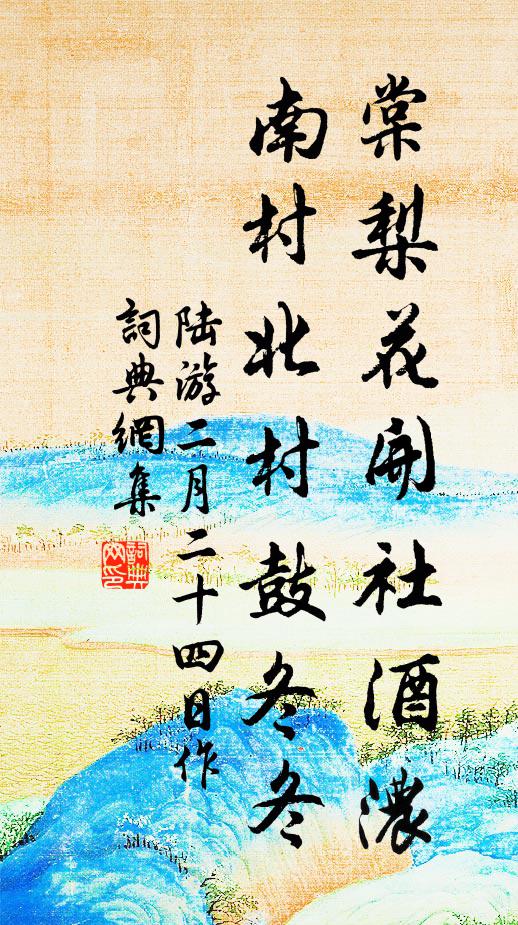 棠梨花開社酒濃
南村北村鼓冬冬
陆游二月二十四日作
詞典網集
詞典
网印